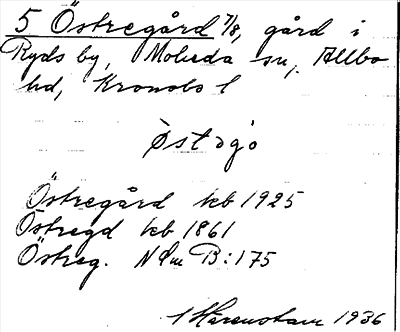 5 Östregård 7/8, gård i
Ryds by, Moheda sn, Allbo
hd, Kronobs l
Östregård kb 1925
Östregd kb 1861
Östreg. NdmB:175
Härenstam 1936